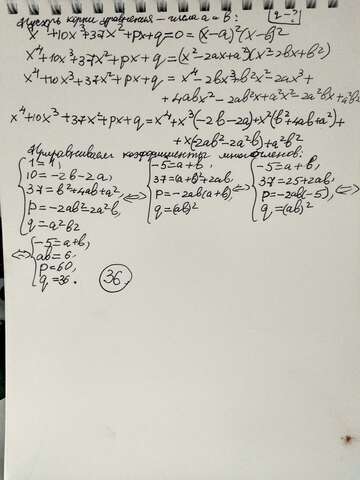 Пусть корни уравнения – числа a и b: q-?
x⁴+10x³+37x²+px+q=0=(x-a)²(x-b)²
x⁴+10x³+37x²+px+q=(x²-2ax+a²)(x²-2bx+b²)
x⁴+10x³+37x²+px+q=x⁴-2bx³+b²x²-2ax³+
+4abx²-2ab²x+a²x²-2a²bx+a²b²
x⁴+10x³+37x²+px+q=x⁴+x³(-2b-2a)+x²(b²+4ab+a²)+
+x(-2ab²-2a²b)+a²b²
Уравниваем коэффициенты многочленов:
{1=1, 10=-2b-2a, 37=b²+4ab+a², p=-2ab²-2a²b, q=a²b² ⇔ {-5=a+b, 37=(a+b)²+2ab, p=-2ab(a+b), q=(ab)² ⇔ {-5=a+b, 37=25+2ab, p=-2ab(-5), q=(ab)² ⇔
⇔ {-5=a+b, ab=6, p=60, q=36. 36